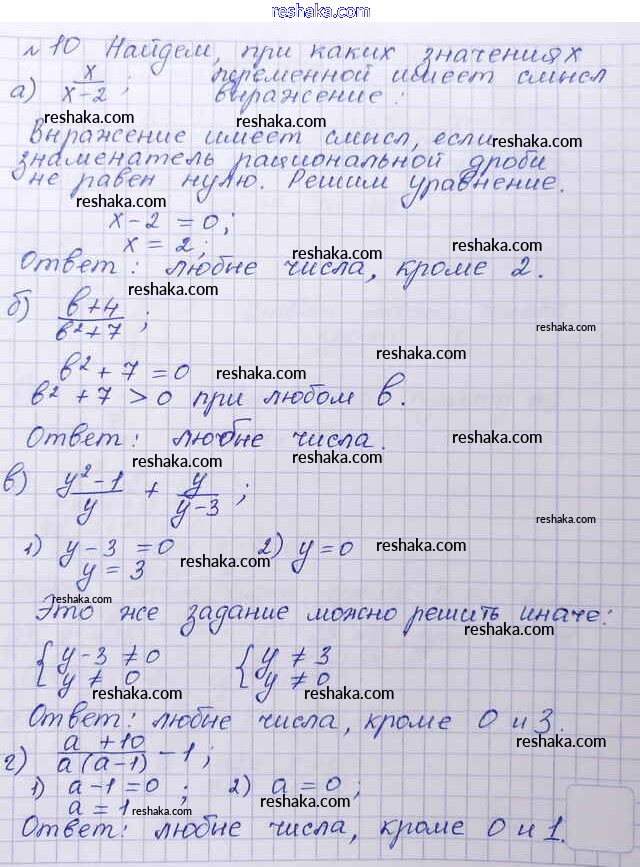 reshaka.com
№10 Найдем, при каких значениях
а) x/x-2; переменной имеет смысл
выражение:
reshaka.com reshaka.com
Выражение имеет смысл, если reshaka.com
знаменатель рациональной дроби
не равен нулю. Решим уравнение.
reshaka.com reshaka.com
x-2 = 0;
x = 2; reshaka.com
Ответ: любые числа, кроме 2.
reshaka.com
б) b+4/b²+7; reshaka.com
reshaka.com
b²+7 = 0 reshaka.com
b²+7 > 0 при любом b.
Ответ: любые числа. reshaka.com
reshaka.com reshaka.com
в) y²-1/y + y/y-3;
reshaka.com
1) y-3 = 0 reshaka.com 2) y = 0 reshaka.com
y = 3
reshaka.com
Это же задание можно решить иначе:
reshaka.com reshaka.com
{ y-3 ≠ 0 { y ≠ 3
y ≠ 0 y ≠ 0
reshaka.com reshaka.com reshaka.com
Ответ: любые числа, кроме 0 и 3.
г) a+10/a(a-1) - 1; reshaka.com
1) a-1 = 0; 2) a = 0;
a = 1 reshaka.com reshaka.com
Ответ: любые числа, кроме 0 и 1.
reshaka.com